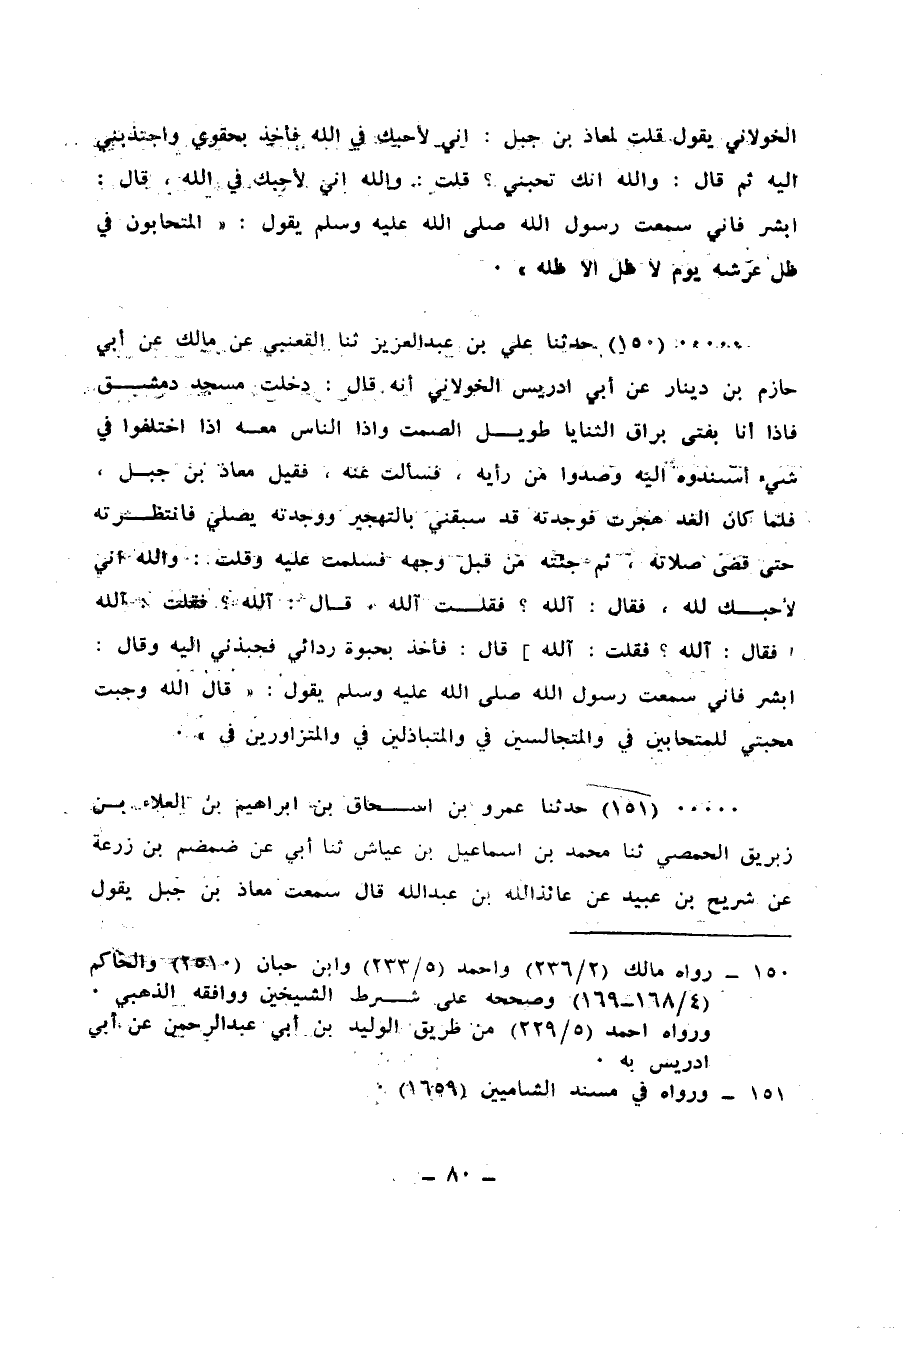 الخولاني يقول قلت لمعاذ بن جبل : اني لأحبك في الله فأخذ بحقوي واجتذبني
اليه ثم قال : والله انك تحبني ؟ قلت : والله اني لأحبك في الله ، قال :
ابشر فاني سمعت رسول الله صلى الله عليه وسلم يقول : « المتحابون في
ظل عرشه يوم لا ظل الا ظله » ٠
٠٠٠٠٠ (١٥٠) حدثنا علي بن عبدالعزيز ثنا القعنبي عن مالك عن أبي
حازم بن دينار عن أبي ادريس الخولاني أنه قال : دخلت مسجد دمشــق
فاذا أنا بفتى براق الثنايا طويــل الصمت واذا الناس معــه اذا اختلفوا في
شيء أسندوه اليه وصدوا من رأيه ، فسألت عنه ، فقيل معاذ بن جبــل ،
فلما كان الغد هجرت فوجدته قد سبقني بالتهجير ووجدته يصلي فانتظــرته
حتى قضى صلاته ، ثم جئته من قبل وجهه فسلمت عليه وقلت : والله اني
لأحبــك لله ، فقال : آلله ؟ فقلــت آلله ، قــال : آلله ؟ فقلت : آلله
فقال : آلله ؟ فقلت : آلله ] قال : فأخذ بحبوة ردائي فجبذني اليه وقال :
ابشر فاني سمعت رسول الله صلى الله عليه وسلم يقول : « قال الله وجبت
محبتي للمتحابين في والمتجالسين في والمتباذلين في والمتزاورين في » ٠
٠٠٠٠٠ (١٥١) حدثنا عمرو بن اســحاق بن ابراهيم بن العلاء بــن
زبريق الحمصي ثنا محمد بن اسماعيل بن عياش ثنا أبي عن ضمضم بن زرعة
عن شريح بن عبيد عن عائذالله بن عبدالله قال سمعت معاذ بن جبل يقول
١٥٠ ــ رواه مالك (٢٣٦/٢) واحمد (٢٣٣/٥) وابن حبان (٢٥١٠) والحاكم
(١٦٨/٤ــ١٦٩) وصححه على شــرط الشيخين ووافقه الذهبي ٠
ورواه احمد (٢٢٩/٥) من طريق الوليد بن أبي عبدالرحمن عن أبي
ادريس به ٠
١٥١ ــ ورواه في مسند الشاميين (١٦٥٩) ٠
ــ ٨٠ ــ